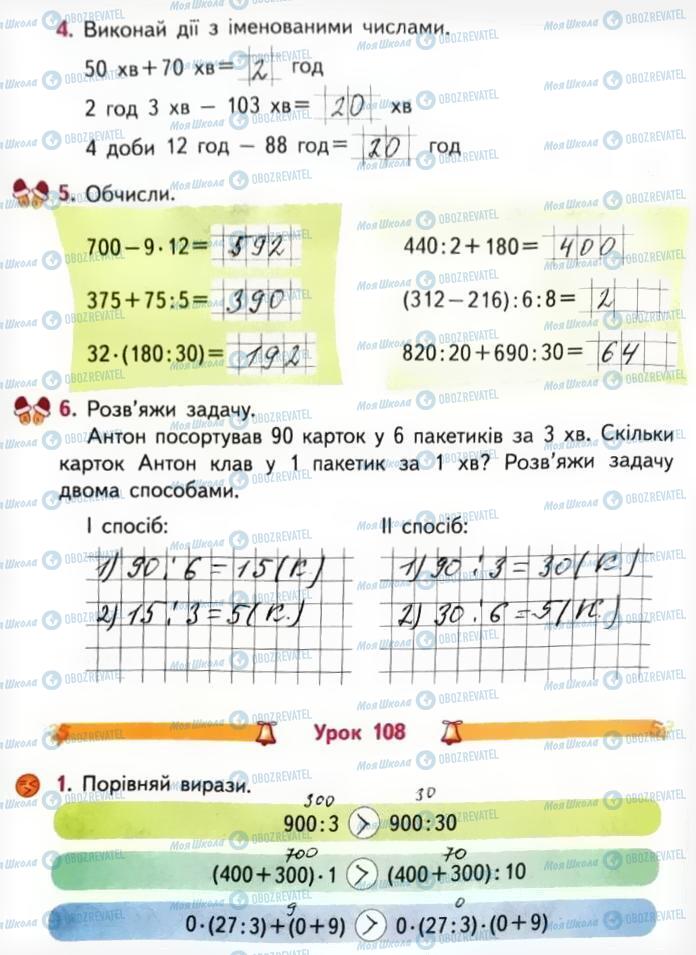 4. Виконай дії з іменованими числами.
50 хв + 70 хв = 2 год
2 год 3 хв − 103 хв = 20 хв
4 доби 12 год − 88 год = 20 год
5. Обчисли.
700 − 9 · 12 = 592
375 + 75 : 5 = 390
32 · (180 : 30) = 192
440 : 2 + 180 = 400
(312 − 216) : 6 : 8 = 2
820 : 20 + 690 : 30 = 64
6. Розв'яжи задачу.
Антон посортував 90 карток у 6 пакетиків за 3 хв. Скільки
карток Антон клав у 1 пакетик за 1 хв? Розв'яжи задачу
двома способами.
І спосіб:
1) 90 : 6 = 15 (к.)
2) 15 : 3 = 5 (к.)
ІІ спосіб:
1) 90 : 3 = 30 (к.)
2) 30 : 6 = 5 (к.)
Урок 108
1. Порівняй вирази.
300 30
900 : 3 > 900 : 30
700 70
(400 + 300) · 1 > (400 + 300) : 10
9 0
0 · (27 : 3) + (0 + 9) > 0 · (27 : 3) · (0 + 9)
Моя Школа OBOZREVATEL